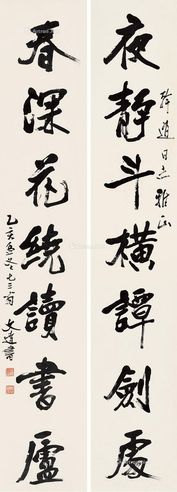 夜靜斗橫譚劍處
幹道同志雅正
春深花繞讀書廬
乙亥孟冬七三翁文達書